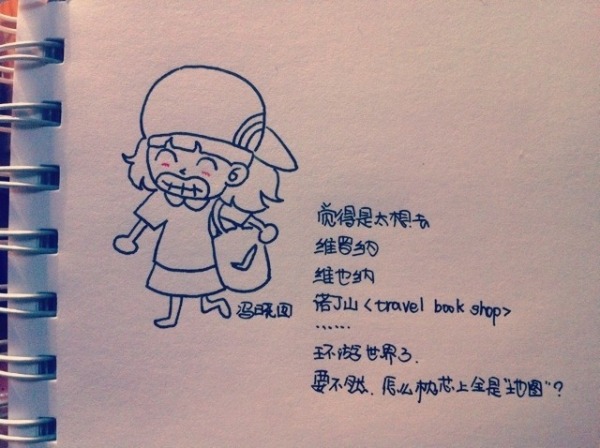 觉得是太想去
维罗纳
维也纳
诺丁山<travel book shop>
……
环游世界了.
要不然.怎么枕芯上全是"地图"?
冯晓囡